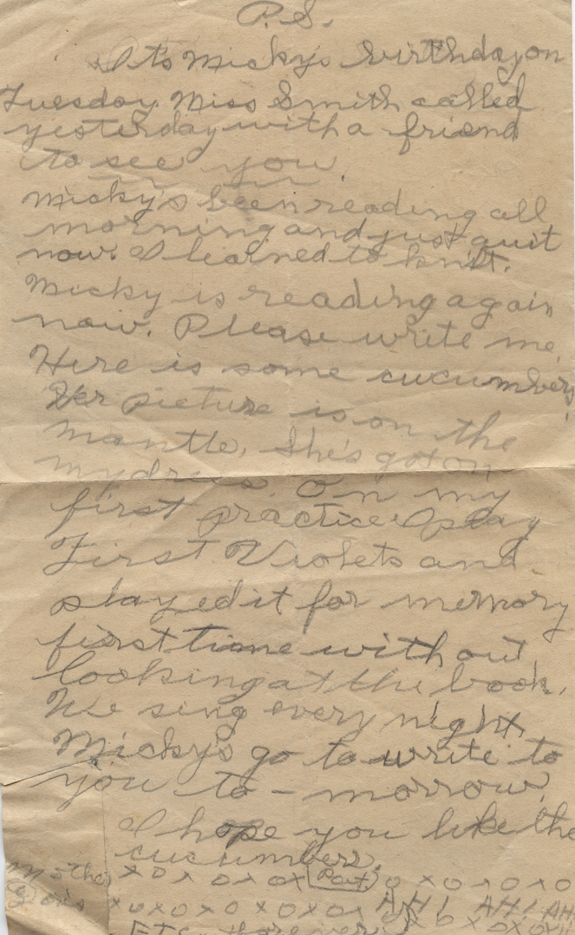 P.S.
It's Micky's birthday on
Tuesday Miss Smith called
yesterday with a friend
to see you.
Micky's been reading all
morning and just quit
now. I learned to knit.
Micky is reading again
now. Please write me.
Here is some cucumbers
Her picture is on the
mantle, She's got on
my dress. On my
first practice I play
First Violets and
played it for memory
first time without
looking at the book.
We sing every night
Micky's go to write to
you to-morrow.
I hope you like the
cucumbers.
x o x o x o x (Part) o x o x o x o
x o x o x o x o x o x AH! AH! AH
ETC